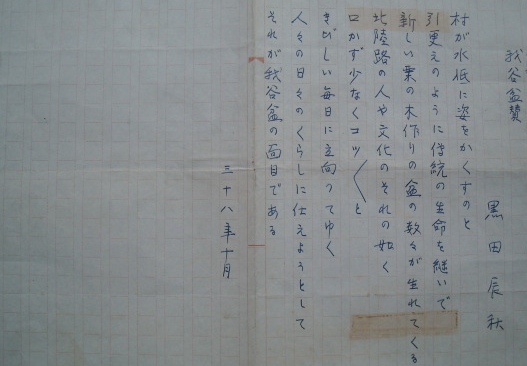 我谷盆賛
黒田辰秋
村が水底に姿をかくすのと
引更えのように伝統の生命を継いで
新しい栗の木作りの盆の数々が生れてくる
北陸路の人や文化のそれの如く
口かず少なくコツ〱と
きびしい毎日に立向ってゆく
人々の日々のくらしに仕えようとして
それが我谷盆の面目である
三十八年十月